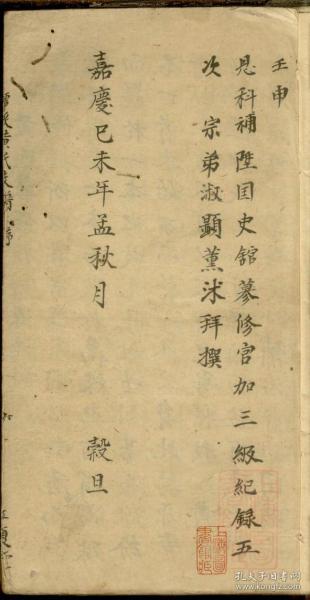 壬申
恩科補陞国史館蓡修官加三級紀録五
次 宗弟淑顯薰沐拜撰
嘉慶巳未年孟秋月 榖旦
孔夫子旧书网